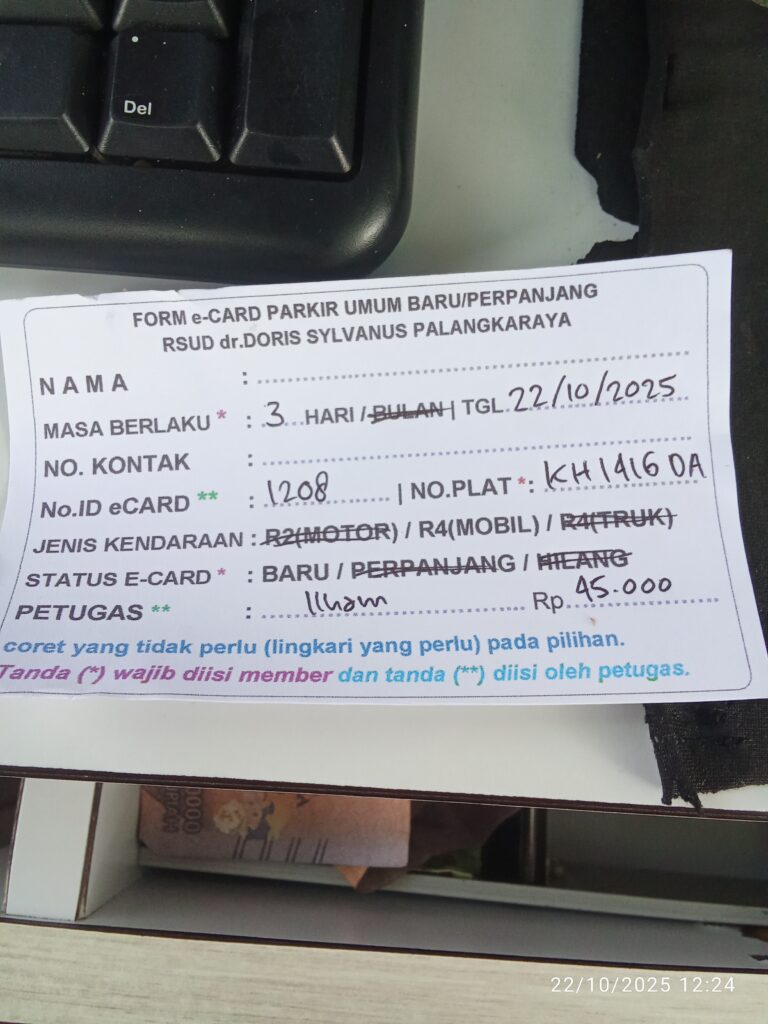 Del
FORM e-CARD PARKIR UMUM BARU/PERPANJANG
RSUD dr.DORIS SYLVANUS PALANGKARAYA
NAMA :
MASA BERLAKU * : 3 HARI / BULAN | TGL 22/10/2025
NO. KONTAK :
No.ID eCARD ** : 1208 | NO.PLAT *: KH 1416 DA
JENIS KENDARAAN : R2(MOTOR) / R4(MOBIL) / R4(TRUK)
STATUS E-CARD * : BARU / PERPANJANG / HILANG
PETUGAS ** : Ilham Rp 45.000
coret yang tidak perlu (lingkari yang perlu) pada pilihan.
Tanda (*) wajib diisi member dan tanda (**) diisi oleh petugas.
22/10/2025 12:24